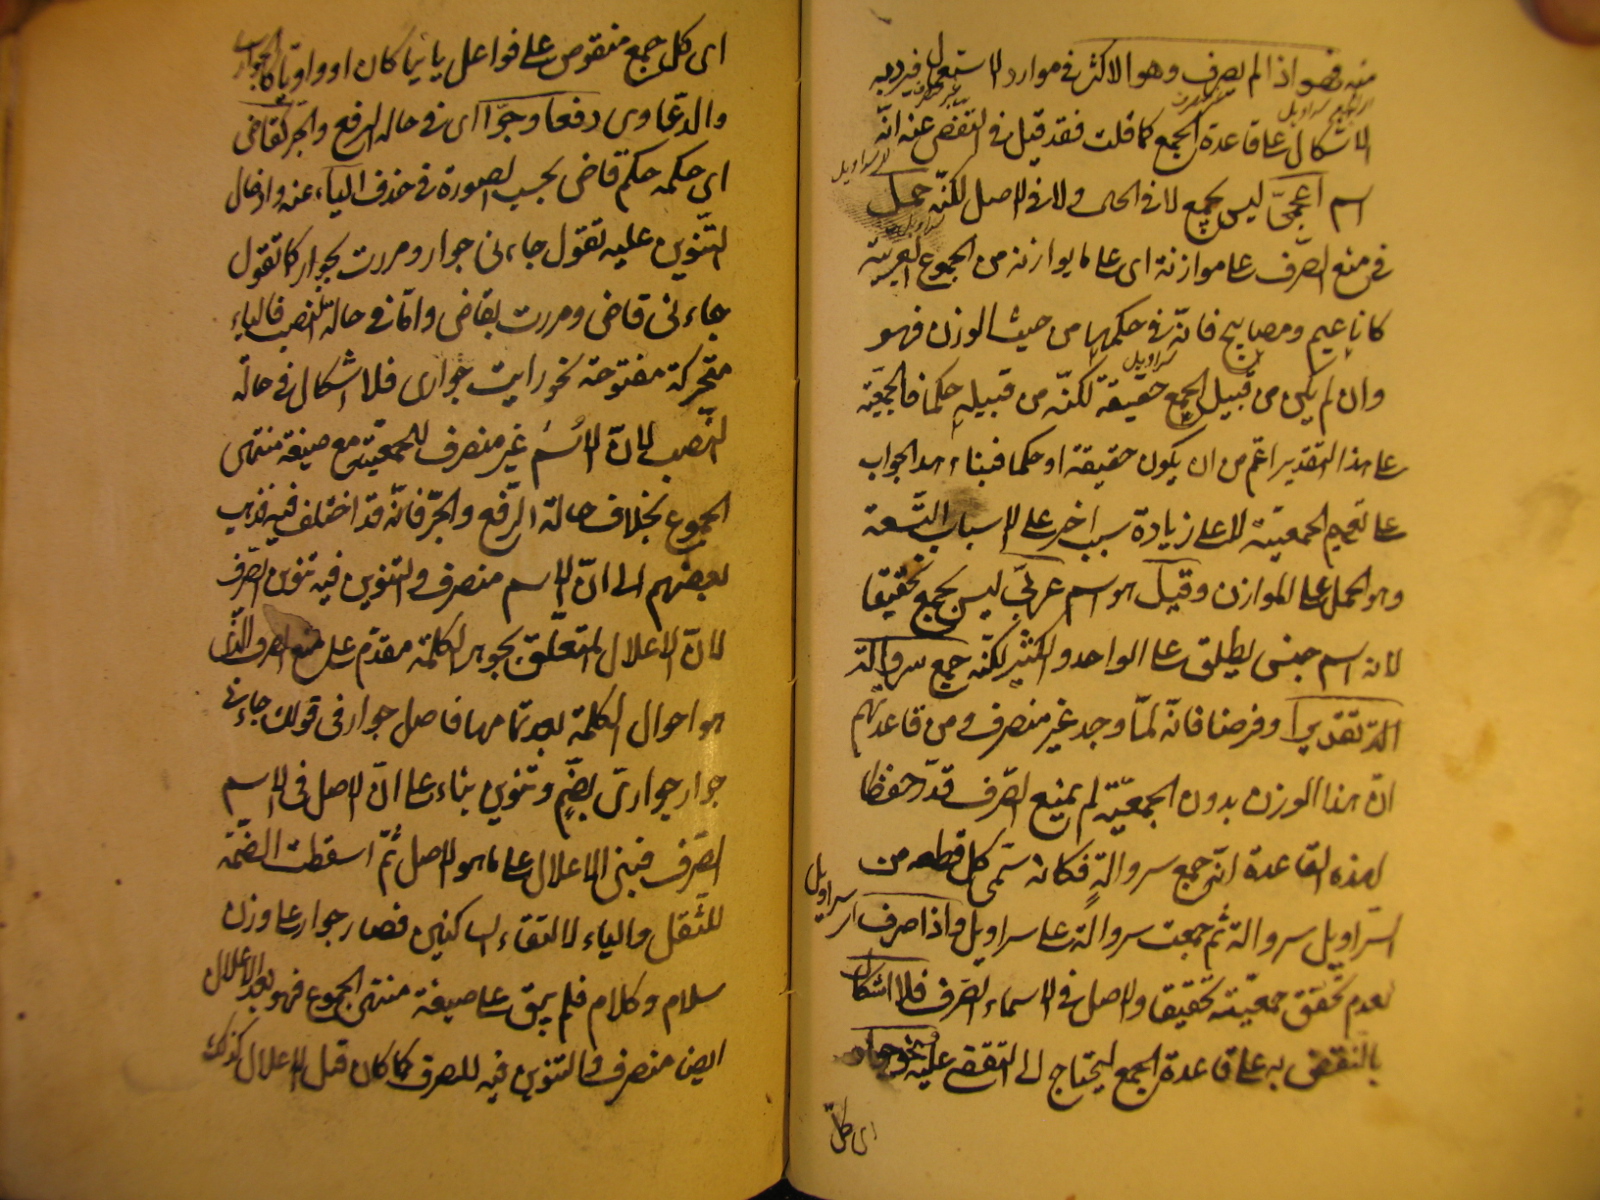 منه فهو اذا لم يصرف وهو الاكثر فى موارد الاستعمال فيرد به
الاشكال على قاعدة الجمع كما قلت فقد قيل فى التفصى عنه انه
اسم اعجمى ليس بجمع لا فى الحال ولا فى الاصل لكنه حمل
فى منع الصرف على موازنة اى على ما يوازنه من الجموع العربية
كاناعيم ومصابيح فانه فى حكمها من حيث الوزن فهو
وان لم يكن من قبيل الجمع حقيقة لكنه من قبيله حكما فالجمعية
على هذا التقدير اعم من ان يكون حقيقة او حكما فبناء هذا الجواب
على تعميم الجمعية لا على زيادة سبب اخر على الاسباب التسعة
وهو الحمل على الموازن وقيل هو اسم عربى ليس بجمع تحقيقا
لانه اسم جنس يطلق على الواحد والكثير لكنه جمع سروالة
تقديرا وفرضا فانه لما وجد غير منصرف ومن قاعدتهم
ان هذا الوزن بدون الجمعية لم يمنع الصرف قدر حفظا
لهذه القاعدة انه جمع سروالة فكانه سمى كل قطعه من
السراويل سروالة ثم جمعت سروالة على سراويل واذا صرف
اى سراويل
لعدم تحقق جمعيته تحقيقا والاصل فى الاسماء الصرف فلا اشكال
بالنقض به على قاعدة الجمع ليحتاج الى التفصى عنه ونحو جوار
اى كل
اى كل جمع منقوص على فواعل يائيا كان او واويا كالجوارى
والدعاوى رفعا وجرا اى فى حالة الرفع والجر كقاض
اى حكمه حكم قاض بحسب الصورة فى حذف الياء عنه وادخال
التنوين عليه تقول جاءنى جوار ومررت بجوار كما تقول
جاءنى قاض ومررت بقاض واما فى حالة النصب فالياء
متحركة مفتوحة نحو رايت جوارى فلا اشكال فى حالة
النصب لان الاسم غير منصرف للجمعية مع صيغة منتهى
الجموع بخلاف حالة الرفع والجر فانه قد اختلف فيه فذهب
بعضهم الى ان الاسم منصرف والتنوين فيه تنوين الصرف
لان الاعلال المتعلق بجوهر الكلمة مقدم على منع الصرف الذى
هو احوال الكلمة بعد تمامها فاصل جوار فى قولك جاءنى
جوار جوارى بضم وتنوين بناء على ان الاصل فى الاسم
الصرف فبنى الاعلال على ما هو الاصل ثم اسقطت الضمة
للثقل والياء لالتقاء الساكنين فصار جوار على وزن
سلام وكلام فلم يبق على صيغة منتهى الجموع فهو بعد الاعلال
ايضا منصرف والتنوين فيه للصرف كما كان قبل الاعلال كذلك